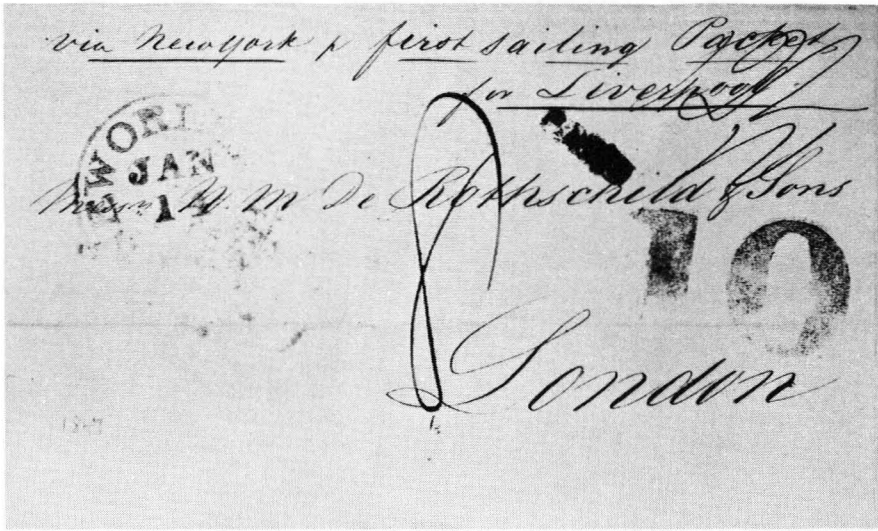 via New York p first sailing Packet
for Liverpool
WORL
JAN
1
Messrs N. M De Rothschild & Sons
8
10
London